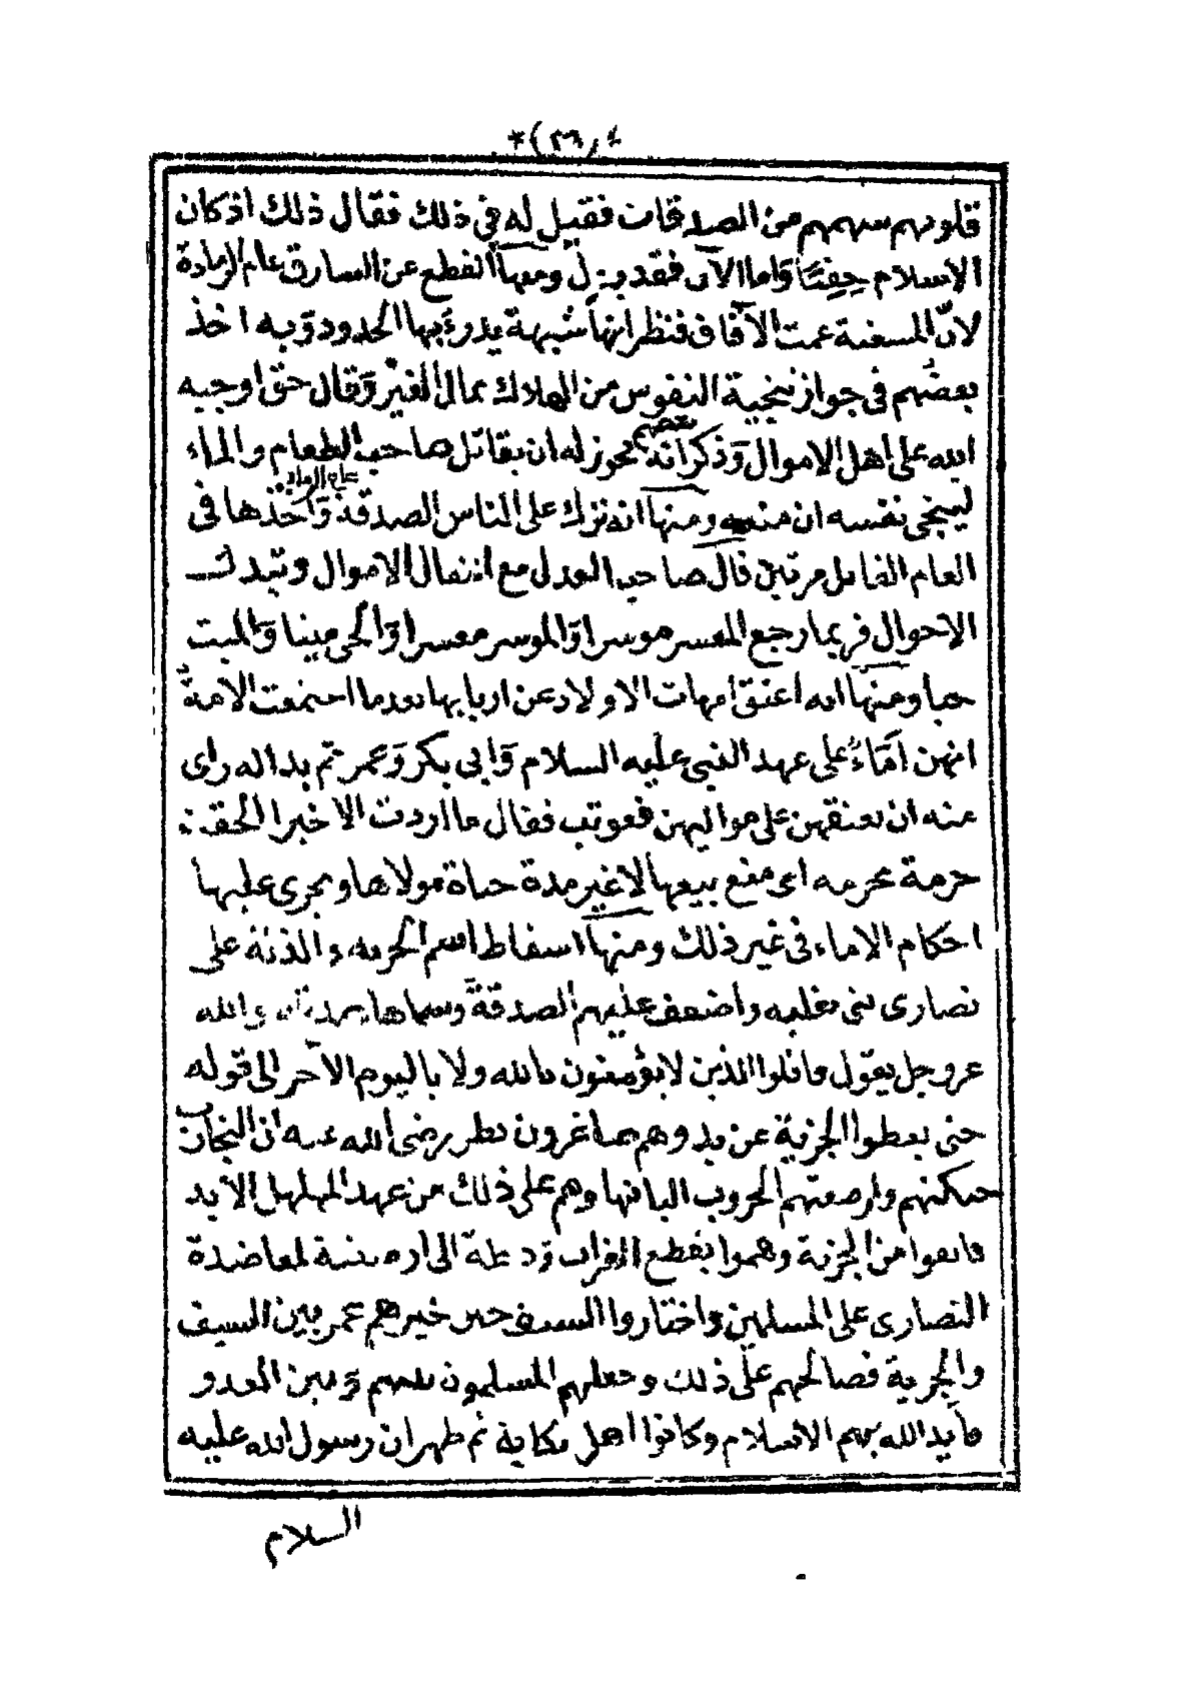 *(٢٦)*
قلوبهم سهمهم من الصدقات فقيل له في ذلك فقال ذلك اذ كان
الاسلام حِقِتًا وَاما الآن فقد بزل ومنها القطع عن السارق عام الرمادة
لانّ المسغبة عمت الآفاق فنظر انها شبهة يدرءُ بها الحدود وَبه اخذ
بعضهم في جواز تنجية النفوس من الهلاك بمال الغير وَقال حق اوجبه
الله على اهل الاموال وَذكر بعضهم انه يجوز له ان يقاتل صاحب الطعام والماء
لينجي نفسه ان منعه ومنها انه ترك على الناس الصدقة عام الرمادة وَاخذها في
العام القابل مرتين قال صاحب العدل مع انتقال الاموال وتبدل
الاحوال فربما رجع المعسر موسرا وَالموسر معسرا وَالحى ميتا وَالميت
حيا ومنها انه اعتق امهات الاولاد عن اربابها بعدما اجتمعت الامةُ
انهن اَمَاءٌ على عهد النبى عليه السلام وَابى بكر وَعمر ثم بدا له راى
منه ان يعتقهن على مواليهن فعوتب فقال ما اردت الا خيرا الحقت
حرمة بحرمه اى منع بيعها لا غير مدة حياة مولاها ويجرى عليها
احكام الاماء في غير ذلك ومنها اسقاط اسم الجزيه والذلة على
نصارى بنى تغلبه واضعف عليهم الصدقة وسماها والله
عز وجل يقول قاتلوا الذين لا يؤمنون بالله ولا باليوم الآخر الى قوله
حتى يعطوا الجزية عن يد وهم صاغرون نظر رضى الله عنه ان التجارب
حنكتهم وارضعتهم الحروب البانها وهم على ذلك من عهد المهلهل الايد
فانفوا من الجزية وهموا بقطع الفرات وَد لمعاضدة
النصارى على المسلمين واختاروا السيف حين خيرهم عمر بين السيف
والجزية فصالحهم على ذلك وجعلهم المسلمون بينهم وَبين العدو
فأيد الله بهم الاسلام وكانوا اهل نكاية ثم ظهر ان رسول الله عليه
السلام